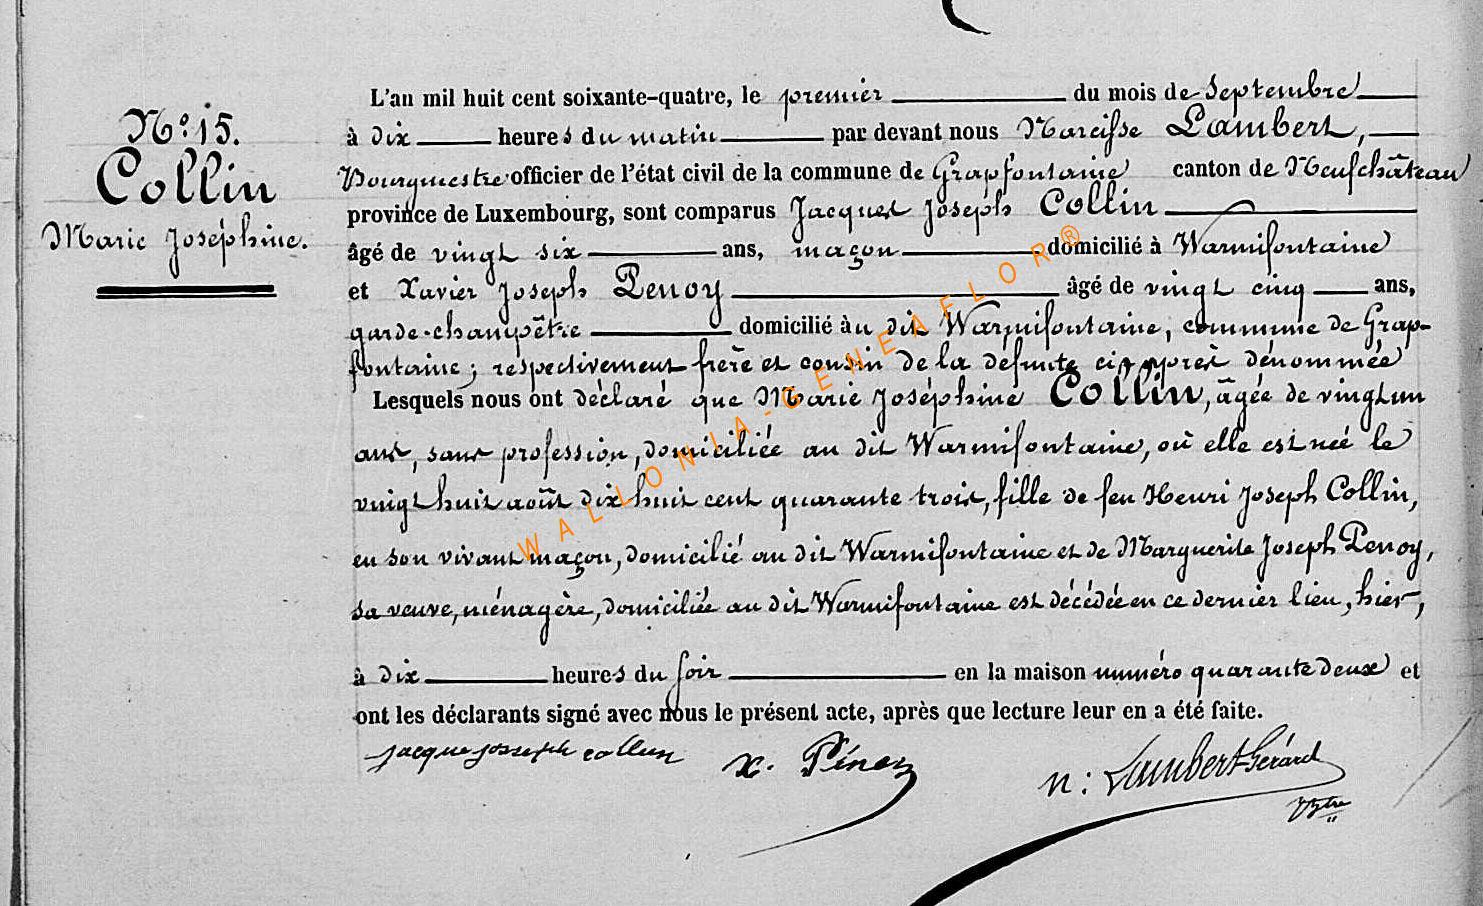 N.º 15.
Collin
Marie Joséphine.
L'an mil huit cent soixante-quatre, le premier du mois de Septembre
à dix heures du matin par devant nous Narcisse Lambert,
Bourgmestre officier de l'état civil de la commune de Grapfontaine canton de Neufchâteau
province de Luxembourg, sont comparus Jacques Joseph Collin
âgé de vingt six ans, maçon domicilié à Warmifontaine
et Xavier Joseph Penoy âgé de vingt cinq ans,
garde-champêtre domicilié au dit Warmifontaine, commune de Grap-
fontaine; respectivement frère et cousin de la défunte ci après dénommée
Lesquels nous ont déclaré que Marie Joséphine Collin, âgée de vingt un
ans, sans profession, domiciliée au dit Warmifontaine, où elle est née le
vingt huit août dix huit cent quarante trois, fille de feu Henri Joseph Collin,
en son vivant maçon, domicilié au dit Warmifontaine et de Marguerite Joseph Penoy,
sa veuve, ménagère, domiciliée au dit Warmifontaine est décédée en ce dernier lieu, hier,
à dix heures du soir en la maison numéro quarante deux et
ont les déclarants signé avec nous le présent acte, après que lecture leur en a été faite.
jacque josseph collin x. Pénoy n: Lambert Gérard
Bgtre
WALLONIA-GENEAFLOR®